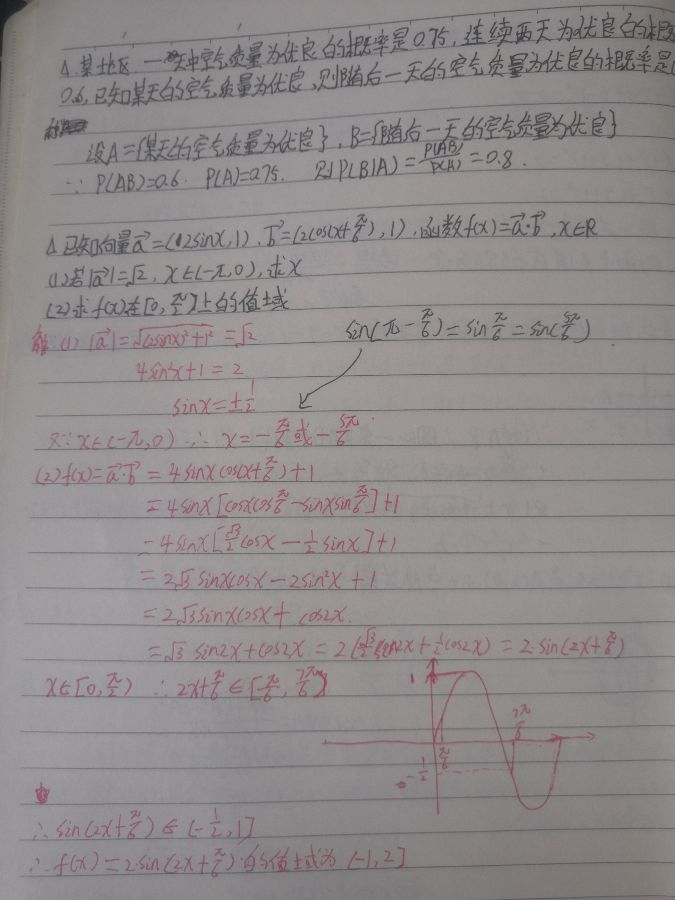 △.某地区一天中空气质量为优良的概率是0.75,连续两天为优良的概
0.6,已知某天的空气质量为优良,则随后一天的空气质量为优良的概率是
设A={某天的空气质量为优良},B={随后一天的空气质量为优良}
∵P(AB)=0.6. P(A)=0.75. 则P(B|A)=P(AB)/P(A)=0.8.
△.已知向量a⃗=(2sinx,1),b⃗=(2cos(x+π/6),1),函数f(x)=a⃗·b⃗,x∈R
(1)若|a⃗|=√2,x∈(-π,0),求x
(2)求f(x)在[0,π/2)上的值域
解:(1)|a⃗|=√((2sinx)²+1²)=√2
sin(π-π/6)=sinπ/6=sin(5π/6)
4sin²x+1=2
sinx=±1/2
又∵x∈(-π,0)∴x=-π/6或-5π/6
(2)f(x)=a⃗·b⃗=4sinxcos(x+π/6)+1
=4sinx[cosxcosπ/6-sinxsinπ/6]+1
=4sinx[√3/2cosx-1/2sinx]+1
=2√3sinxcosx-2sin²x+1
=2√3sinxcosx+cos2x.
=√3sin2x+cos2x=2(√3/2sin2x+1/2cos2x)=2sin(2x+π/6)
x∈[0,π/2) ∴2x+π/6∈[π/6,7π/6)
1
7π/6
π/6
-1/2
∴sin(2x+π/6)∈(-1/2,1]
∴f(x)=2sin(2x+π/6)的值域为(-1,2]